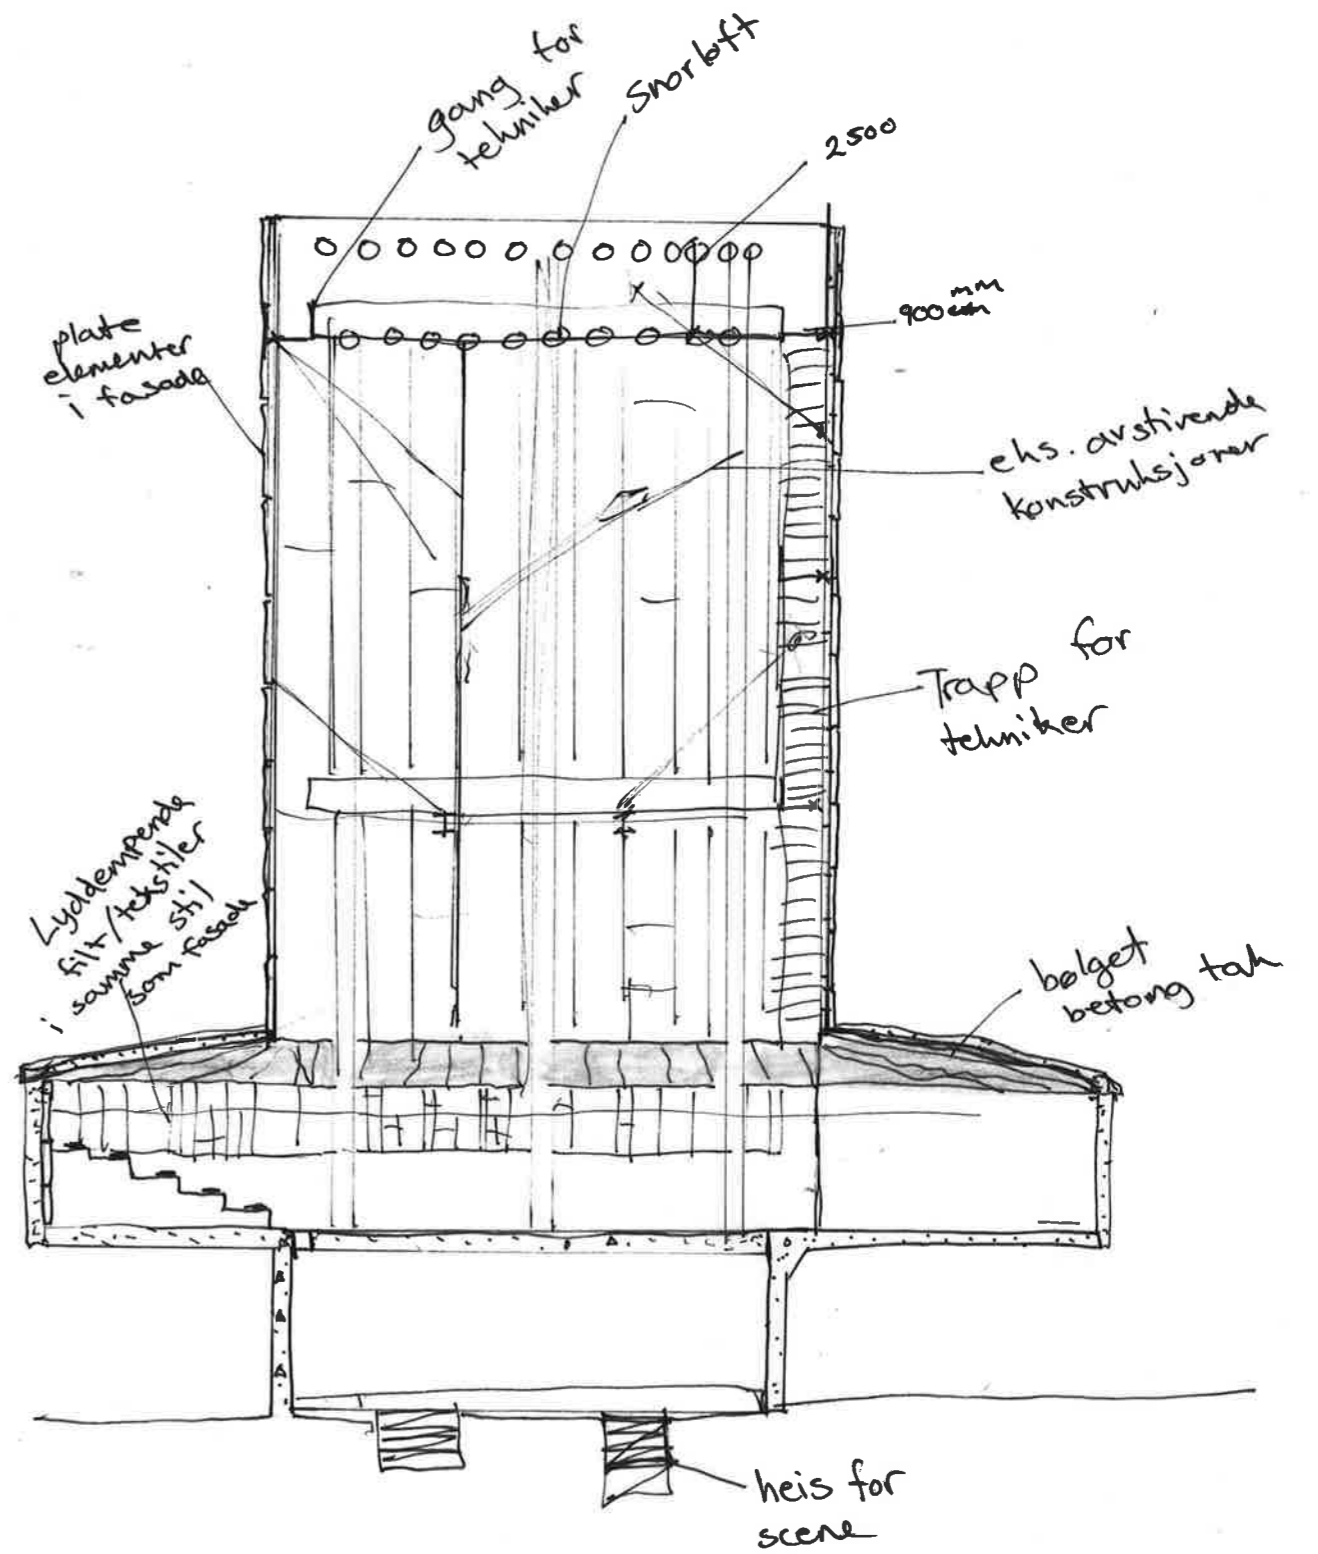 gang for
tekniker
Snorloft
2500
900 mm
plate
elementer
i fasade
eks. avstivende
konstruksjoner
Trapp for
tekniker
Lyddempende
filt/tekstiler
i samme stil
som fasade
bølget
betong tak
heis for
scene